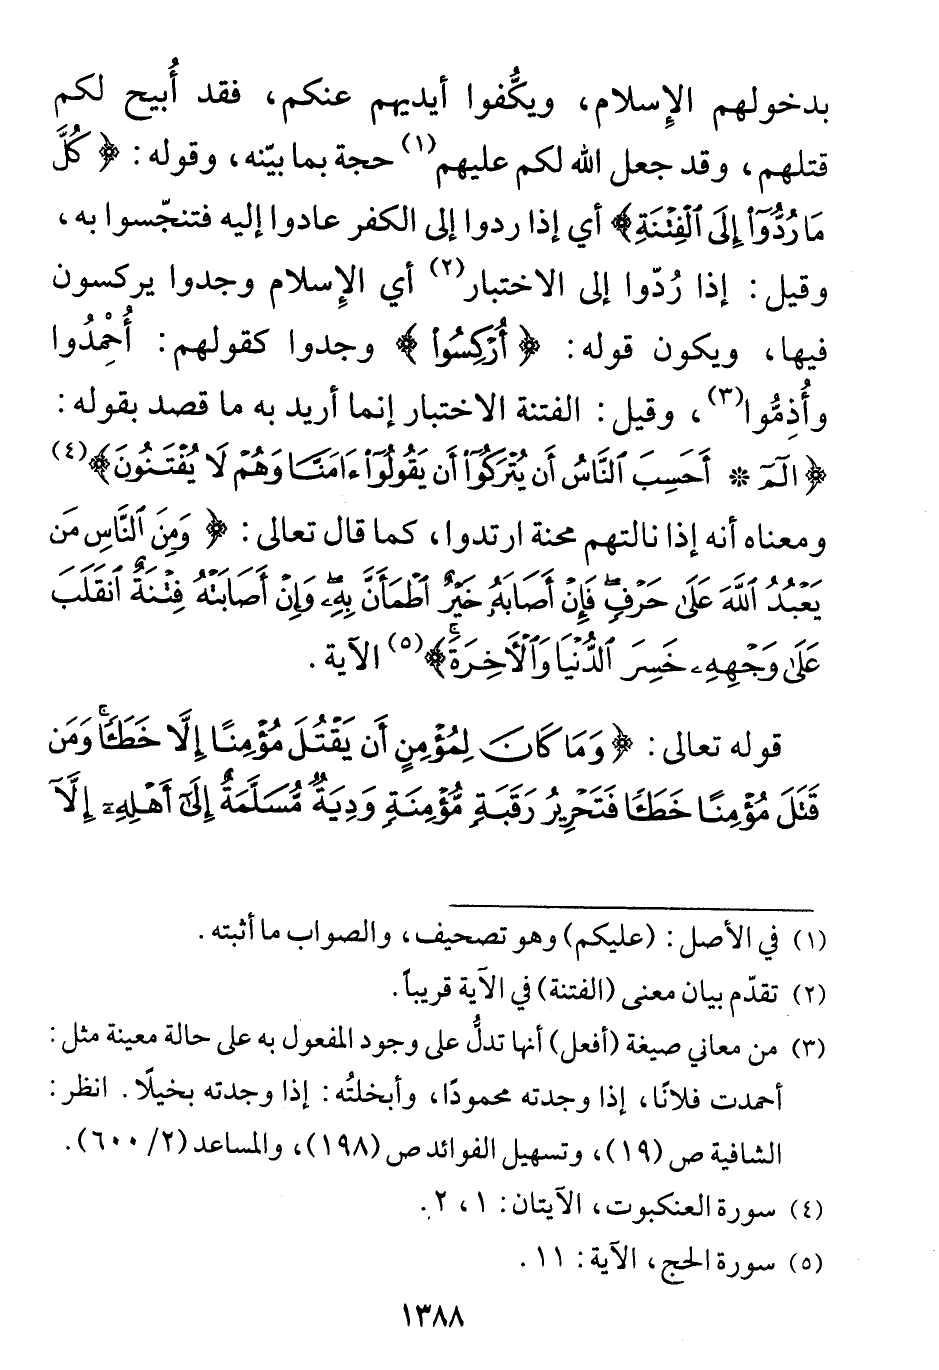 بدخولهم الإسلام، ويكُّفوا أيديهم عنكم، فقد أُبيح لكم
قتلهم، وقد جعل الله لكم عليهم(١) حجة بما بيّنه، وقوله: ﴿ كُلَّ
مَا رُدُّوٓا۟ إِلَى ٱلْفِتْنَةِ﴾ أي إذا ردوا إلى الكفر عادوا إليه فتنجّسوا به،
وقيل: إذا رُدّوا إلى الاختبار(٢) أي الإسلام وجدوا يركسون
فيها، ويكون قوله: ﴿ أُرْكِسُوا۟ ﴾ وجدوا كقولهم: أُحْمِدُوا
وأُذِمُّوا(٣)، وقيل: الفتنة الاختبار إنما أريد به ما قصد بقوله:
﴿ الٓمٓ * أَحَسِبَ ٱلنَّاسُ أَن يُتْرَكُوٓا۟ أَن يَقُولُوٓا۟ ءَامَنَّا وَهُمْ لَا يُفْتَنُونَ﴾(٤)
ومعناه أنه إذا نالتهم محنة ارتدوا، كما قال تعالى: ﴿ وَمِنَ ٱلنَّاسِ مَن
يَعْبُدُ ٱللَّهَ عَلَىٰ حَرْفٍۖ فَإِنْ أَصَابَهُۥ خَيْرٌ ٱطْمَأَنَّ بِهِۦۖ وَإِنْ أَصَابَتْهُ فِتْنَةٌ ٱنقَلَبَ
عَلَىٰ وَجْهِهِۦ خَسِرَ ٱلدُّنْيَا وَٱلْأَخِرَةَۚ﴾(٥) الآية.
قوله تعالى: ﴿ وَمَا كَانَ لِمُؤْمِنٍ أَن يَقْتُلَ مُؤْمِنًا إِلَّا خَطَـًٔاۚ وَمَن
قَتَلَ مُؤْمِنًا خَطَـًٔا فَتَحْرِيرُ رَقَبَةٍ مُّؤْمِنَةٍ وَدِيَةٌ مُّسَلَّمَةٌ إِلَىٰٓ أَهْلِهِۦٓ إِلَّآ
(١) في الأصل: (عليكم) وهو تصحيف، والصواب ما أثبته.
(٢) تقدّم بيان معنى (الفتنة) في الآية قريباً.
(٣) من معاني صيغة (أفعل) أنها تدلُّ على وجود المفعول به على حالة معينة مثل:
أحمدت فلانًا، إذا وجدته محمودًا، وأبخلتُه: إذا وجدته بخيلًا. انظر:
الشافية ص (١٩)، وتسهيل الفوائد ص (١٩٨)، والمساعد (٢/ ٦٠٠).
(٤) سورة العنكبوت، الآيتان: ١، ٢.
(٥) سورة الحج، الآية: ١١.
١٣٨٨